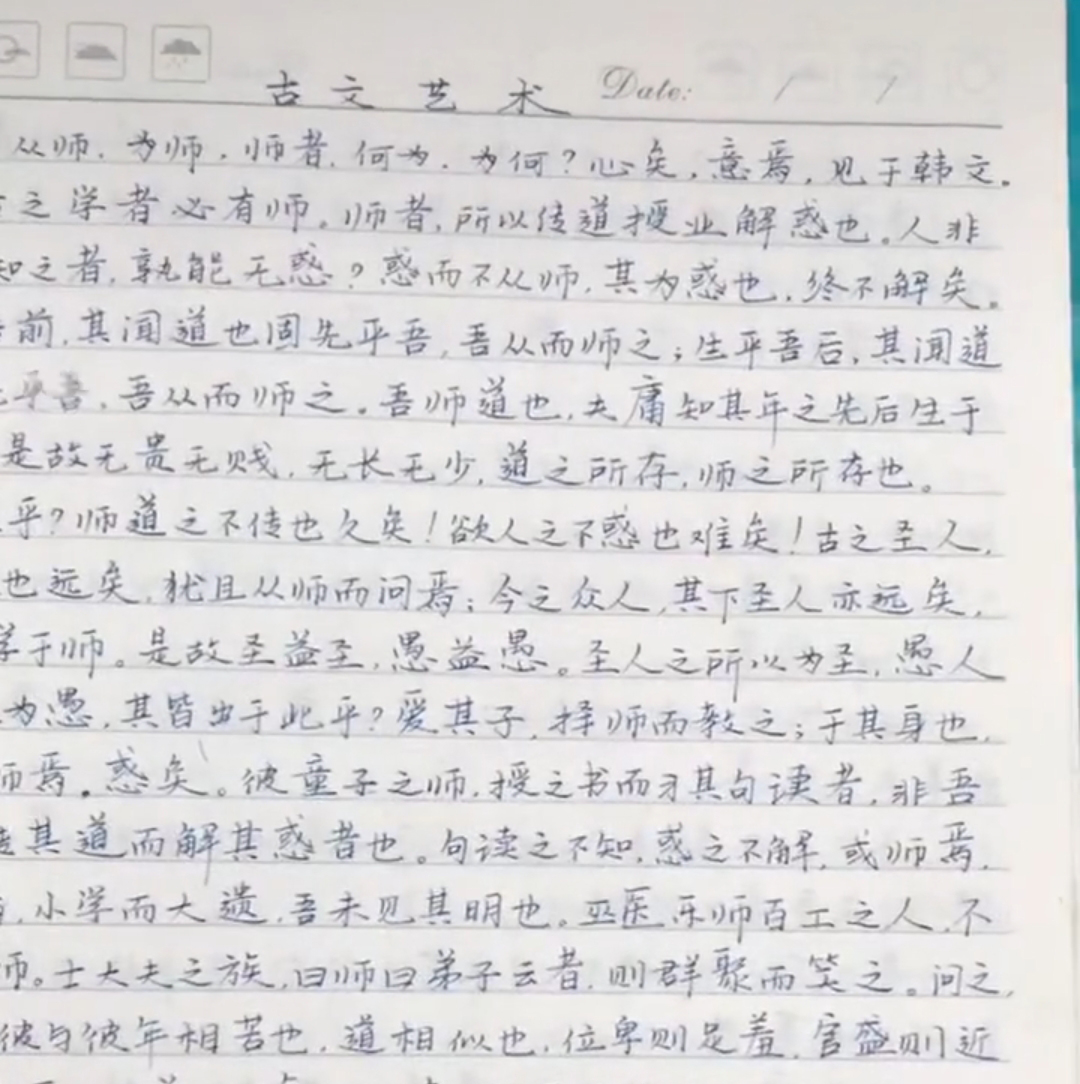 古文艺术 Date: / /
从师.为师.师者.何为.为何？心矣.意焉.见于韩文.
古之学者必有师.师者,所以传道授业解惑也.人非
知之者,孰能无惑？惑而不从师,其为惑也,终不解矣.
前,其闻道也固先乎吾,吾从而师之；生乎吾后,其闻道
乎吾,吾从而师之.吾师道也,夫庸知其年之先后生于
是故无贵无贱,无长无少,道之所存,师之所存也.
乎？师道之不传也久矣！欲人之不惑也难矣！古之圣人,
也远矣,犹且从师而问焉；今之众人,其下圣人亦远矣,
学于师。是故圣益圣,愚益愚。圣人之所以为圣,愚人
为愚,其皆出于此乎？爱其子,择师而教之；于其身也,
师焉.惑矣。彼童子之师,授之书而习其句读者,非吾
其道而解其惑者也。句读之不知,惑之不解,或师焉,
,小学而大遗,吾未见其明也。巫医乐师百工之人,不
师。士大夫之族,曰师曰弟子云者,则群聚而笑之。问之,
彼与彼年相若也,道相似也,位卑则足羞,官盛则近